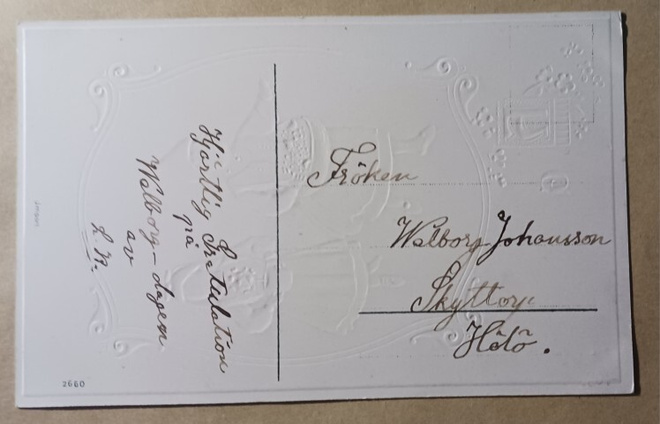 Hjärtlig Gratulation
på
Walborg-dagen
av
L. B.
Fröken
Walborg Johansson
Skyttorp
Hälö.
2660